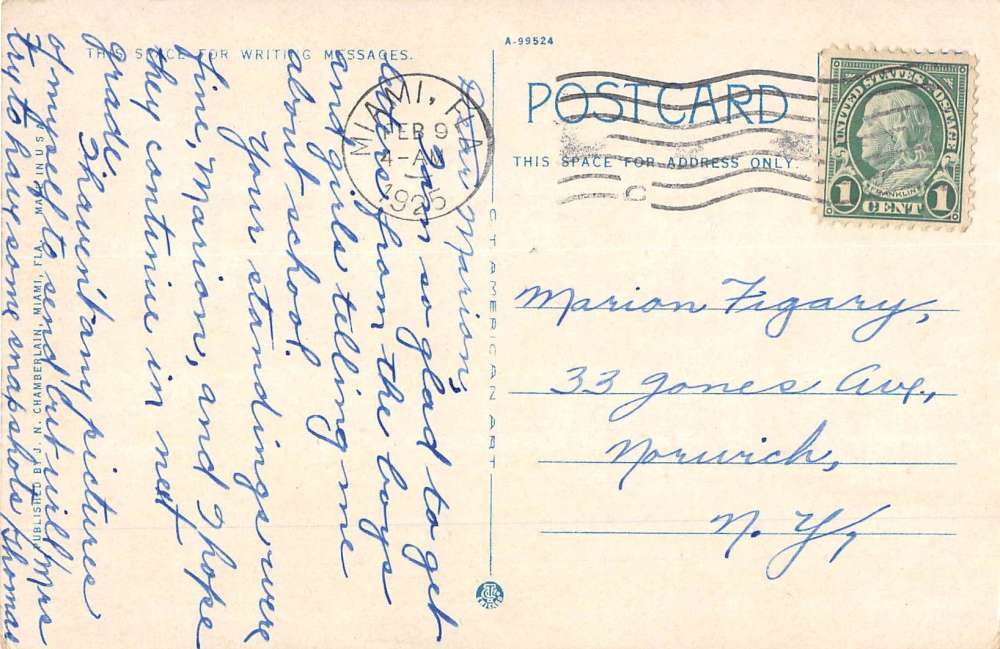 A-99524
THIS SPACE FOR WRITING MESSAGES.
POST CARD
THIS SPACE FOR ADDRESS ONLY.
MIAMI, FLA.
FEB 9
4-AM
1925
UNITED STATES POSTAGE
FRANKLIN
1 CENT 1
Dear Marion;
I am so glad to get
letters from the boys
and girls telling me
about school.
Your standings were
fine, Marion, and I hope
they continue in next
grade.
I haven't any pictures
of myself to send but will
try to have some snapshots
Mrs
Thomas
Marion Figary,
33 Jones Ave.,
Norwich,
N. Y.,
PUBLISHED BY J. N. CHAMBERLAIN, MIAMI, FLA. MADE IN U.S.A.
C.T. AMERICAN ART